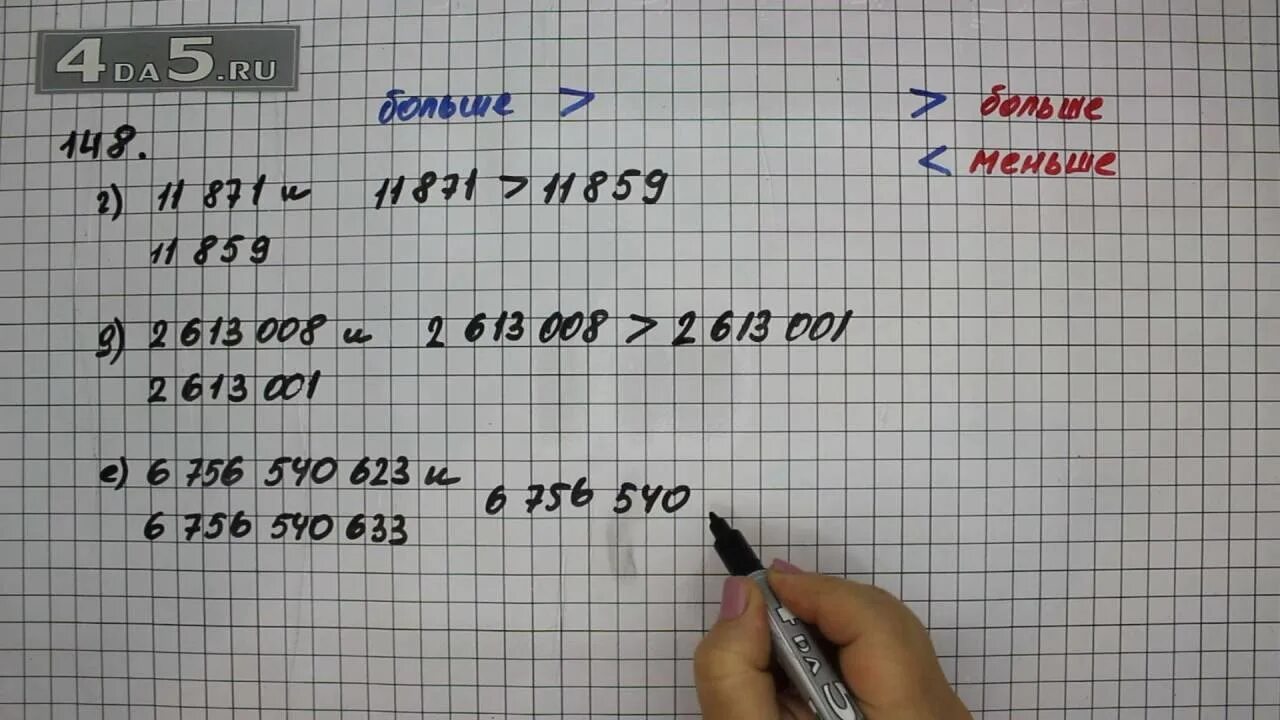 4DA5.RU
больше > > больше
148. < меньше
г) 11 871 и 11 871 > 11 859
11 859
д) 2 613 008 и 2 613 008 > 2 613 001
2 613 001
е) 6 756 540 623 и 6 756 540
6 756 540 633
4DA5